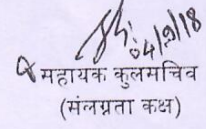 04/9/18
सहायक कुलसचिव
(संलग्नता कक्ष)